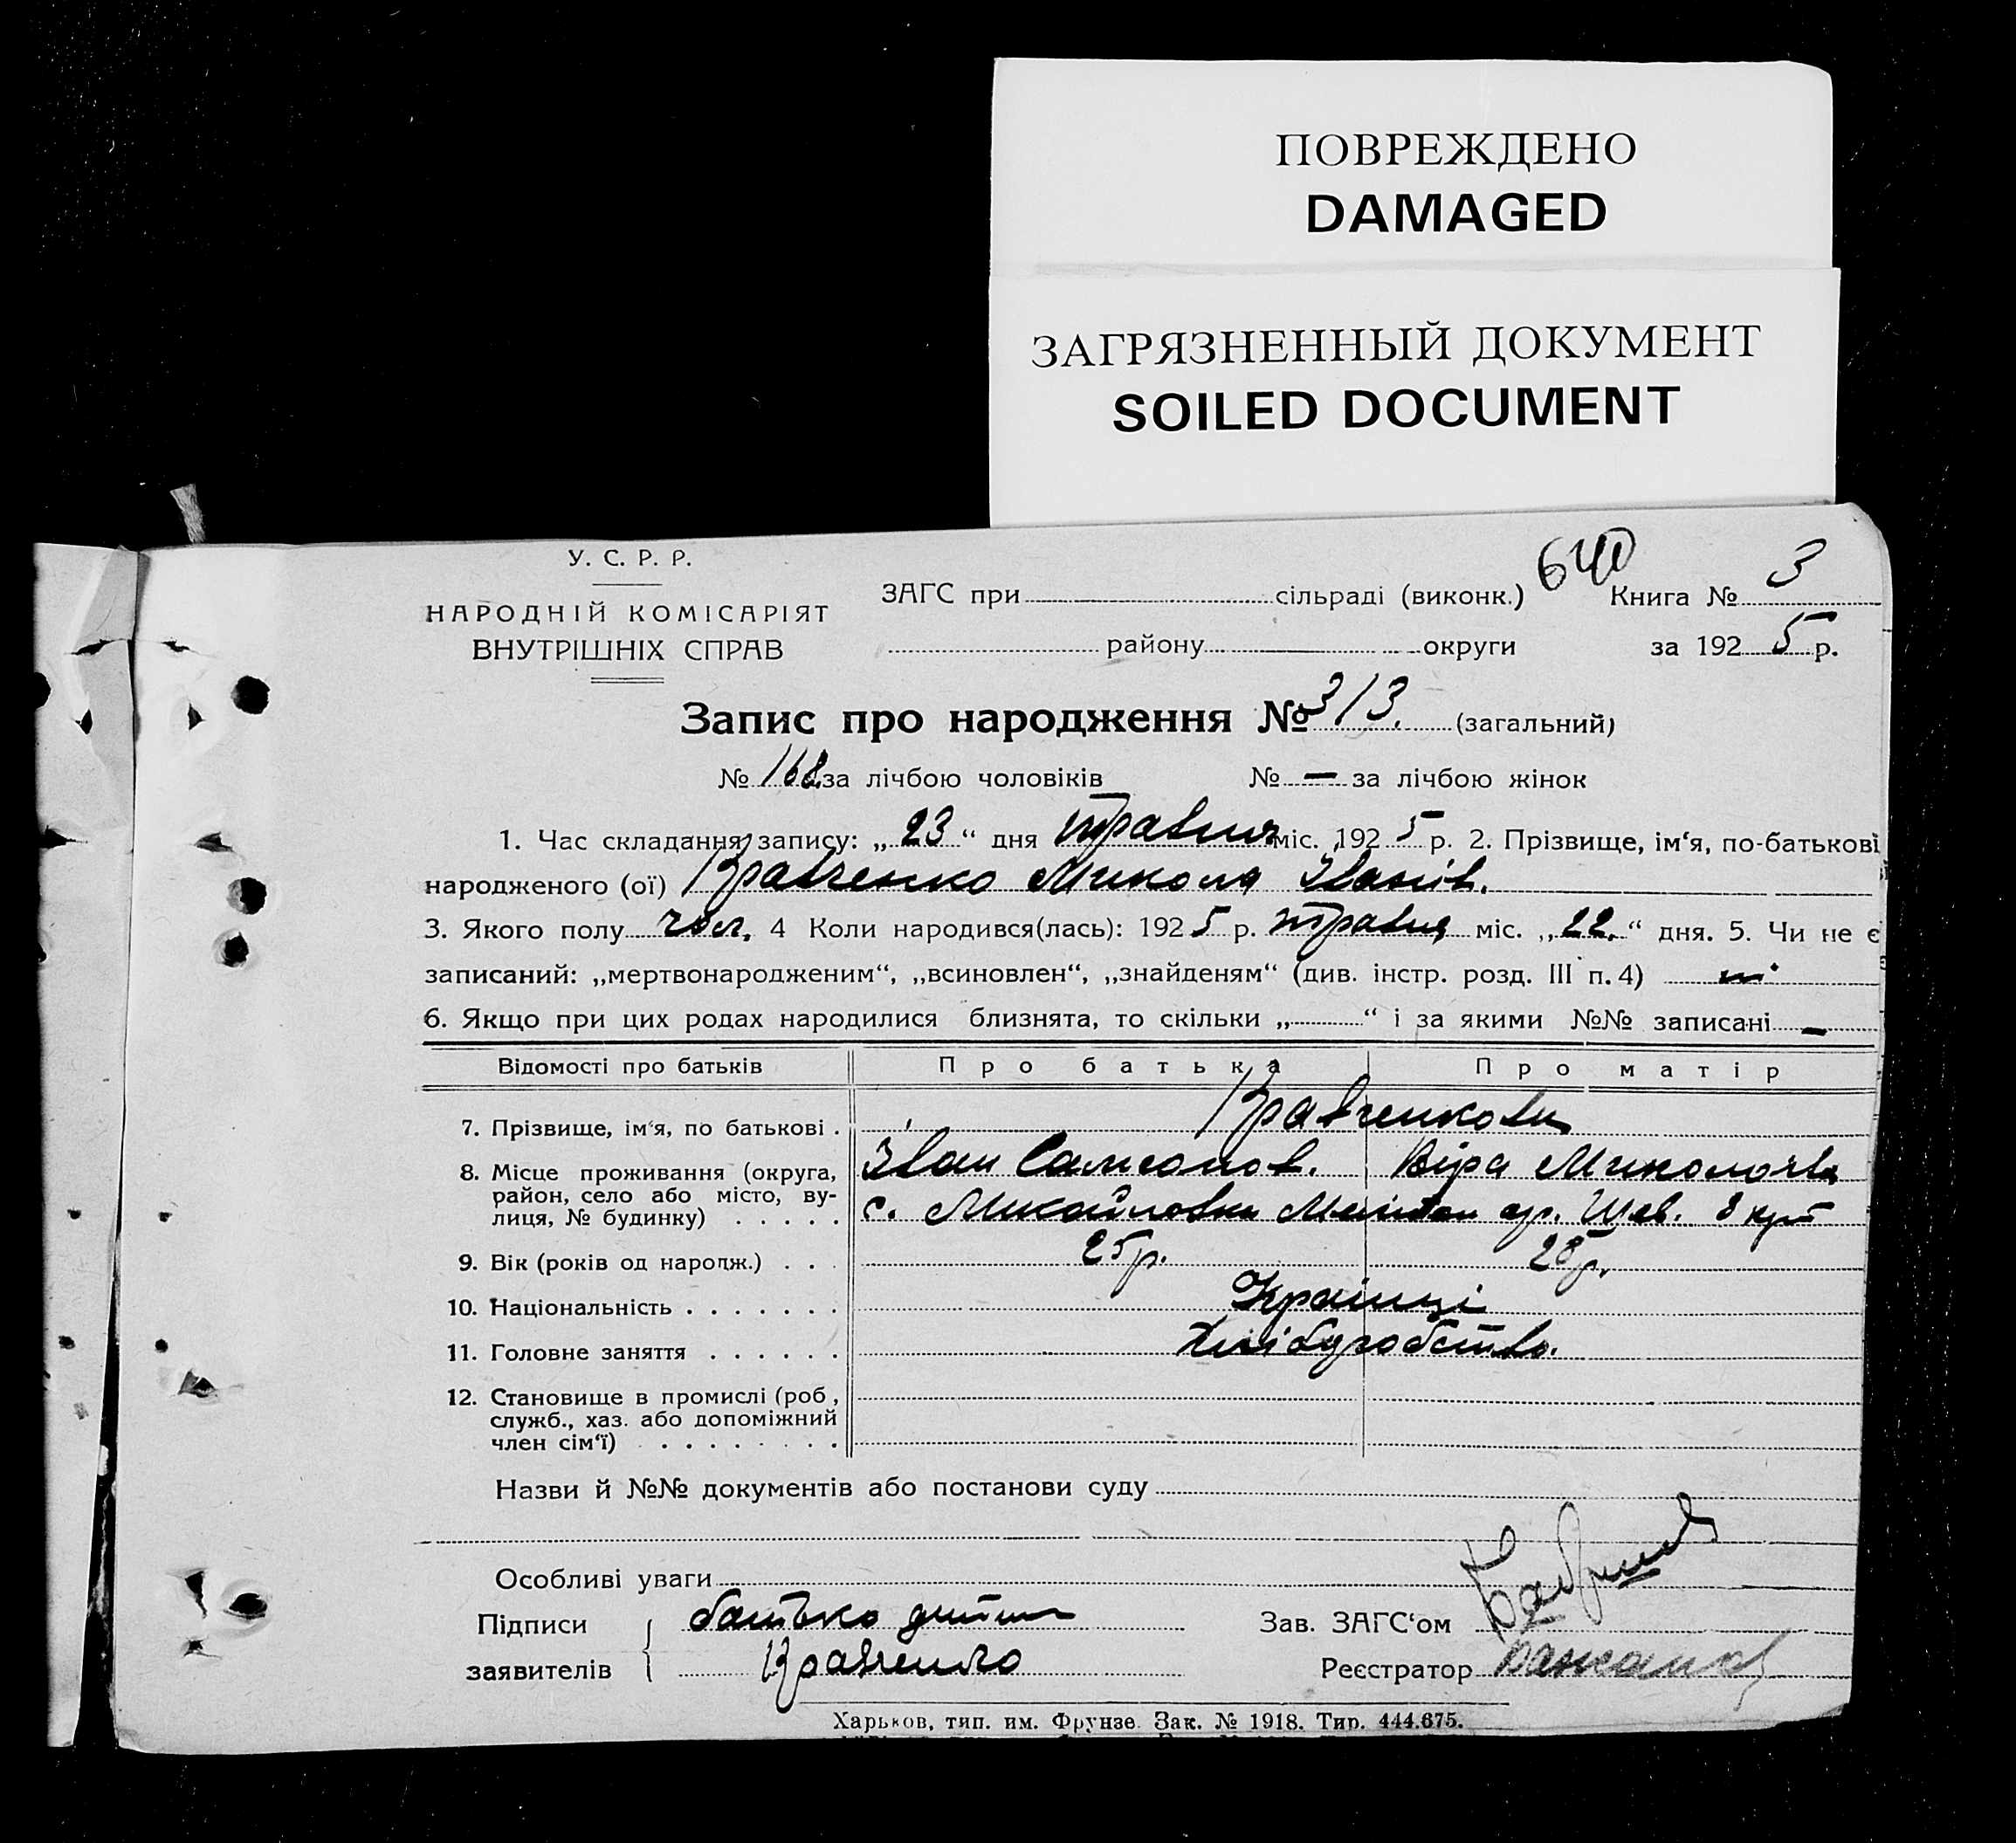 ПОВРЕЖДЕНО
DAMAGED
ЗАГРЯЗНЕННЫЙ ДОКУМЕНТ
SOILED DOCUMENT
У. С. Р. Р.
НАРОДНІЙ КОМІСАРІЯТ
ВНУТРІШНІХ СПРАВ
640
ЗАГС при сільраді (виконк.) Книга № 3
району округи за 1925 р.
Запис про народження № 313. (загальний)
№ 168 за лічбою чоловіків № — за лічбою жінок
1. Час складання запису: „23“ дня травня міс. 1925 р. 2. Прізвище, ім‘я, по-батькові
народженого (ої) Кравченко Микола Іванів.
3. Якого полу чол. 4 Коли народився(лась): 1925 р. травня міс. „22.“ дня. 5. Чи не є
записаний: „мертвонародженим“, „всиновлен“, „знайденям“ (див. інстр. розд. III п. 4)
6. Якщо при цих родах народилися близнята, то скільки „ “ і за якими №№ записані —
Відомості про батьків Про батька Про матір
7. Прізвище, ім‘я, по батькові . Кравченкови
Іван Самсонов. Віра Миколаєва
8. Місце проживання (округа,
район, село або місто, ву-
лиця, № будинку) . . . . . с. Михайловка
9. Вік (років од народж.) . . . 25 р. 28 р.
10. Національність . . . . . . . Українці
11. Головне заняття . . . . . . Хліборобство.
12. Становище в промислі (роб.,
служб., хаз. або допоміжний
член сім‘ї) . . . . . . . .
Назви й №№ документів або постанови суду
Особливі уваги
Підписи батько дитини Зав. ЗАГС‘ом
заявителів Кравченко Реєстратор
Харьков, тип. им. Фрунзе. Зак. № 1918. Тир. 444.675.